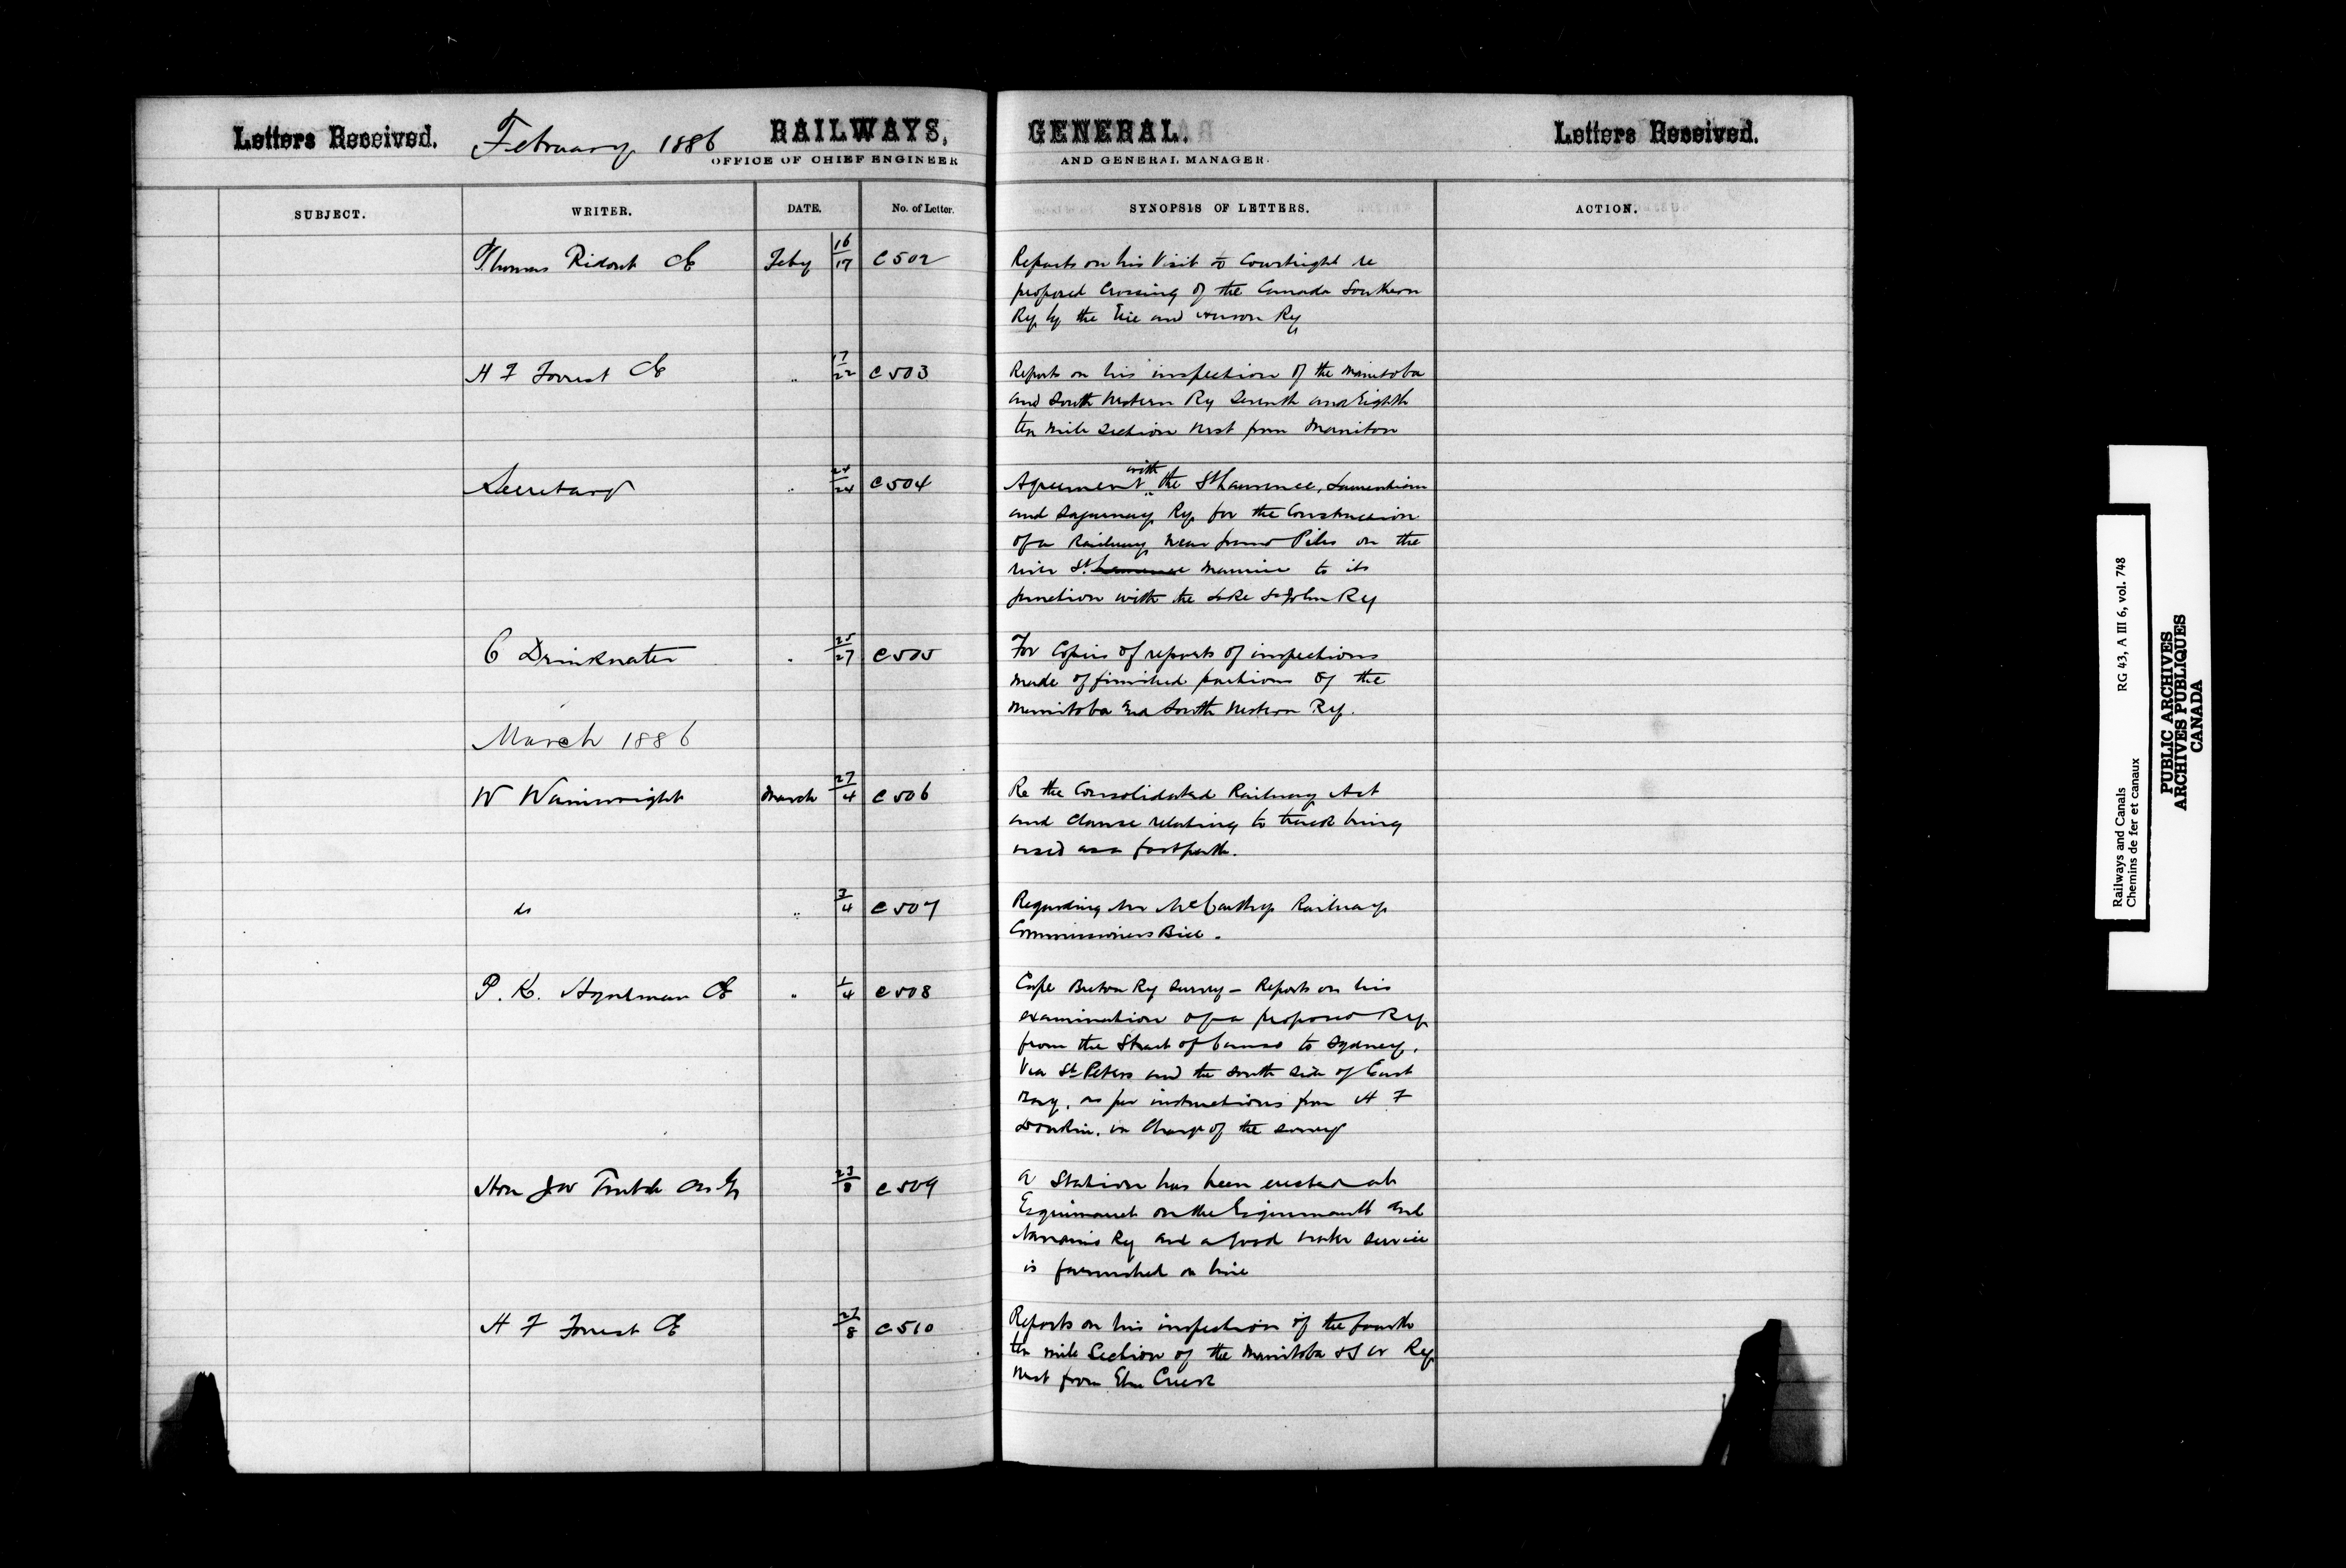 Letters Received. February 1886 RAILWAYS, GENERAL. Letters Received.
OFFICE OF CHIEF ENGINEER AND GENERAL MANAGER.
SUBJECT. WRITER. DATE. No. of Letter. SYNOPSIS OF LETTERS. ACTION.
Thomas Ridout CE Feby 16/17 C502 Reports on his Visit to Courtright re
proposed Crossing of the Canada Southern
Ry by the Erie and Huron Ry
H F Forrest CE " 17/22 C503 Reports on his inspection of the Manitoba
and South Western Ry Seventh and Eighth
ten mile Section West from Manitou
Secretary " 24/24 C504 Agreement with the St Lawrence, Laurentian
and Saguenay Ry for the Construction
of a Railway near Grand Piles on the
river St. Lawrence Maurice to its
junction with the Lake St John Ry
C Drinkwater " 25/27 C505 For Copies of reports of inspections
made of finished portions of the
Manitoba and South Western Ry.
March 1886
W Wainwright March 27/4 C506 Re the Consolidated Railway Act
and clause relating to track being
used as a footpath.
do " 3/4 C507 Regarding Mr McCarthy Railway
Commissioners Bill.
P. K. Hyndman CE " 1/4 C508 Cape Breton Ry Survey - Reports on his
examination of a proposed Ry
from the Strait of Canso to Sydney,
Via St Peters and the South Side of East
Bay, as per instructions from H F
Donkin, in Charge of the Survey
Hon JW Trutch 23/8 C509 A Station has been erected at
Esquimault on the Esquimault and
Nanaimo Ry and a good water service
is furnished on line
H F Forrest CE 27/8 C510 Reports on his inspection of the fourth
ten mile Section of the Manitoba & S W Ry
West from Elm Creek
Railways and Canals RG 43, A III 6, vol. 748
Chemins de fer et canaux
PUBLIC ARCHIVES
ARCHIVES PUBLIQUES
CANADA